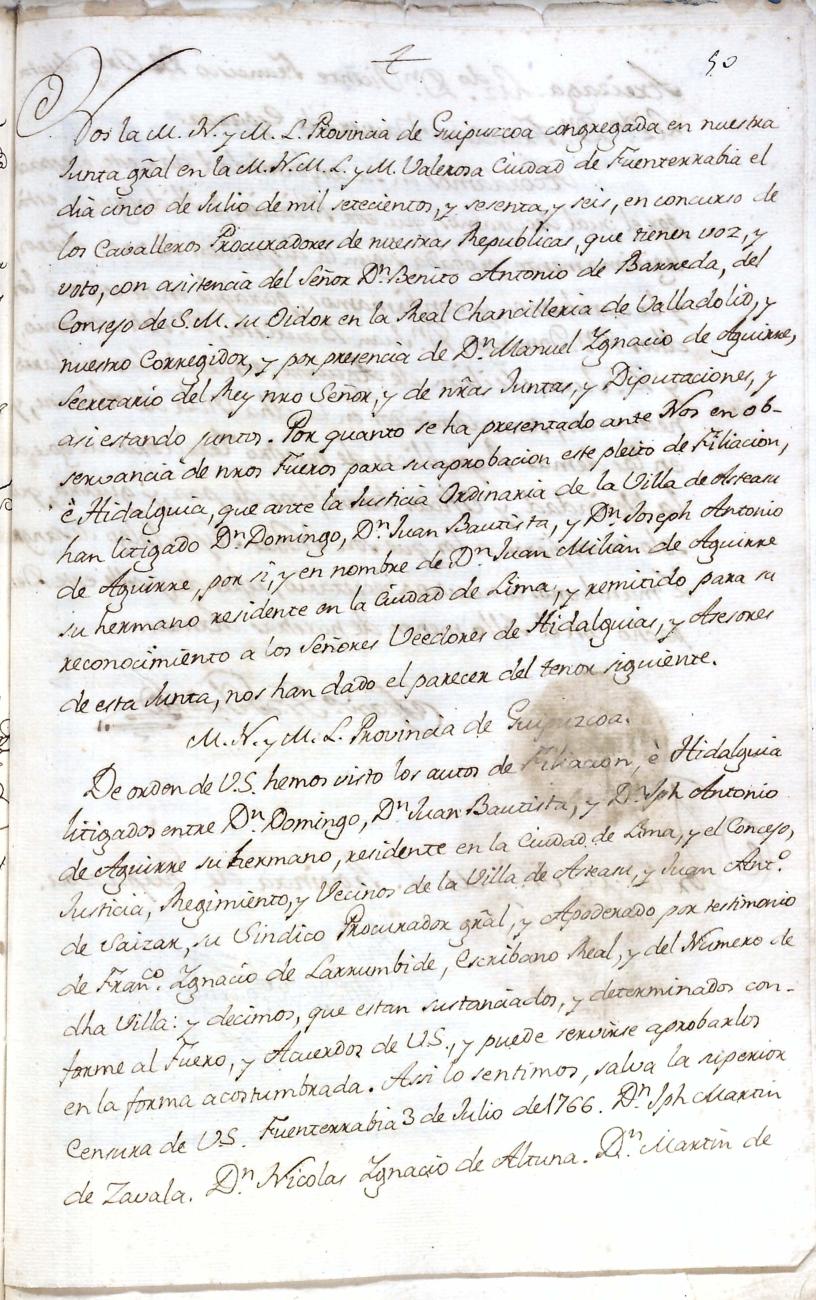 50
Nos la M. N. y M. L. Provincia de Guipuzcoa congregada en nuestra
Junta gral en la M. N. M. L. y M. Valerosa Ciudad de Fuenterrabia el
dia cinco de Julio de mil setecientos, y sesenta, y seis, en concurso de
los Cavalleros Procuradores de nuestras Republicas, que tienen voz, y
voto, con asistencia del Señor Dn. Benito Antonio de Barreda, del
Consejo de S. M. su Oidor en la Real Chancilleria de Valladolid, y
nuestro Corregidor, y por presencia de Dn. Manuel Ygnacio de Aguirre,
Secretario del Rey nro Señor, y de nras Juntas, y Diputaciones, y
asi estando juntos. Por quanto se ha presentado ante Nos en ob-
servancia de nros Fueros para su aprobacion este pleito de Filiacion,
è Hidalguia, que ante la Justicia Ordinaria de la Villa de Asteasu
han litigado Dn. Domingo, Dn. Juan Bautista, y Dn. Joseph Antonio
de Aguirre, por si, y en nombre de Dn. Juan Milian de Aguirre
su hermano residente en la Ciudad de Lima, y remitido para su
reconocimiento a los Señores Veedores de Hidalguias, y Asesores
de esta Junta, nos han dado el parecer del tenor siguiente.
M. N. y M. L. Provincia de Guipuzcoa.
De orden de V.S. hemos visto los autos de Filiacion, è Hidalguia
litigados entre Dn. Domingo, Dn. Juan Bautista, y Dn. Jph Antonio
de Aguirre su hermano, residente en la Ciudad de Lima, y el Concejo,
Justicia, Regimiento, y Vecinos de la Villa de Asteasu, y Juan Anto.
de Saizar, su Sindico Procurador gral, y Apoderado por testimonio
de Franco. Ygnacio de Larrumbide, Escribano Real, y del Numero de
dha Villa: y decimos, que estan sustanciados, y determinados con-
forme al Fuero, y Acuerdos de V.S., y puede servirse aprobarlos
en la forma acostumbrada. Assi lo sentimos, salva la superior
Censura de V.S. Fuenterrabia 3 de Julio de 1766. Dn. Jph Martin
de Zavala. Dn. Nicolas Ygnacio de Altuna. Dn. Martin de